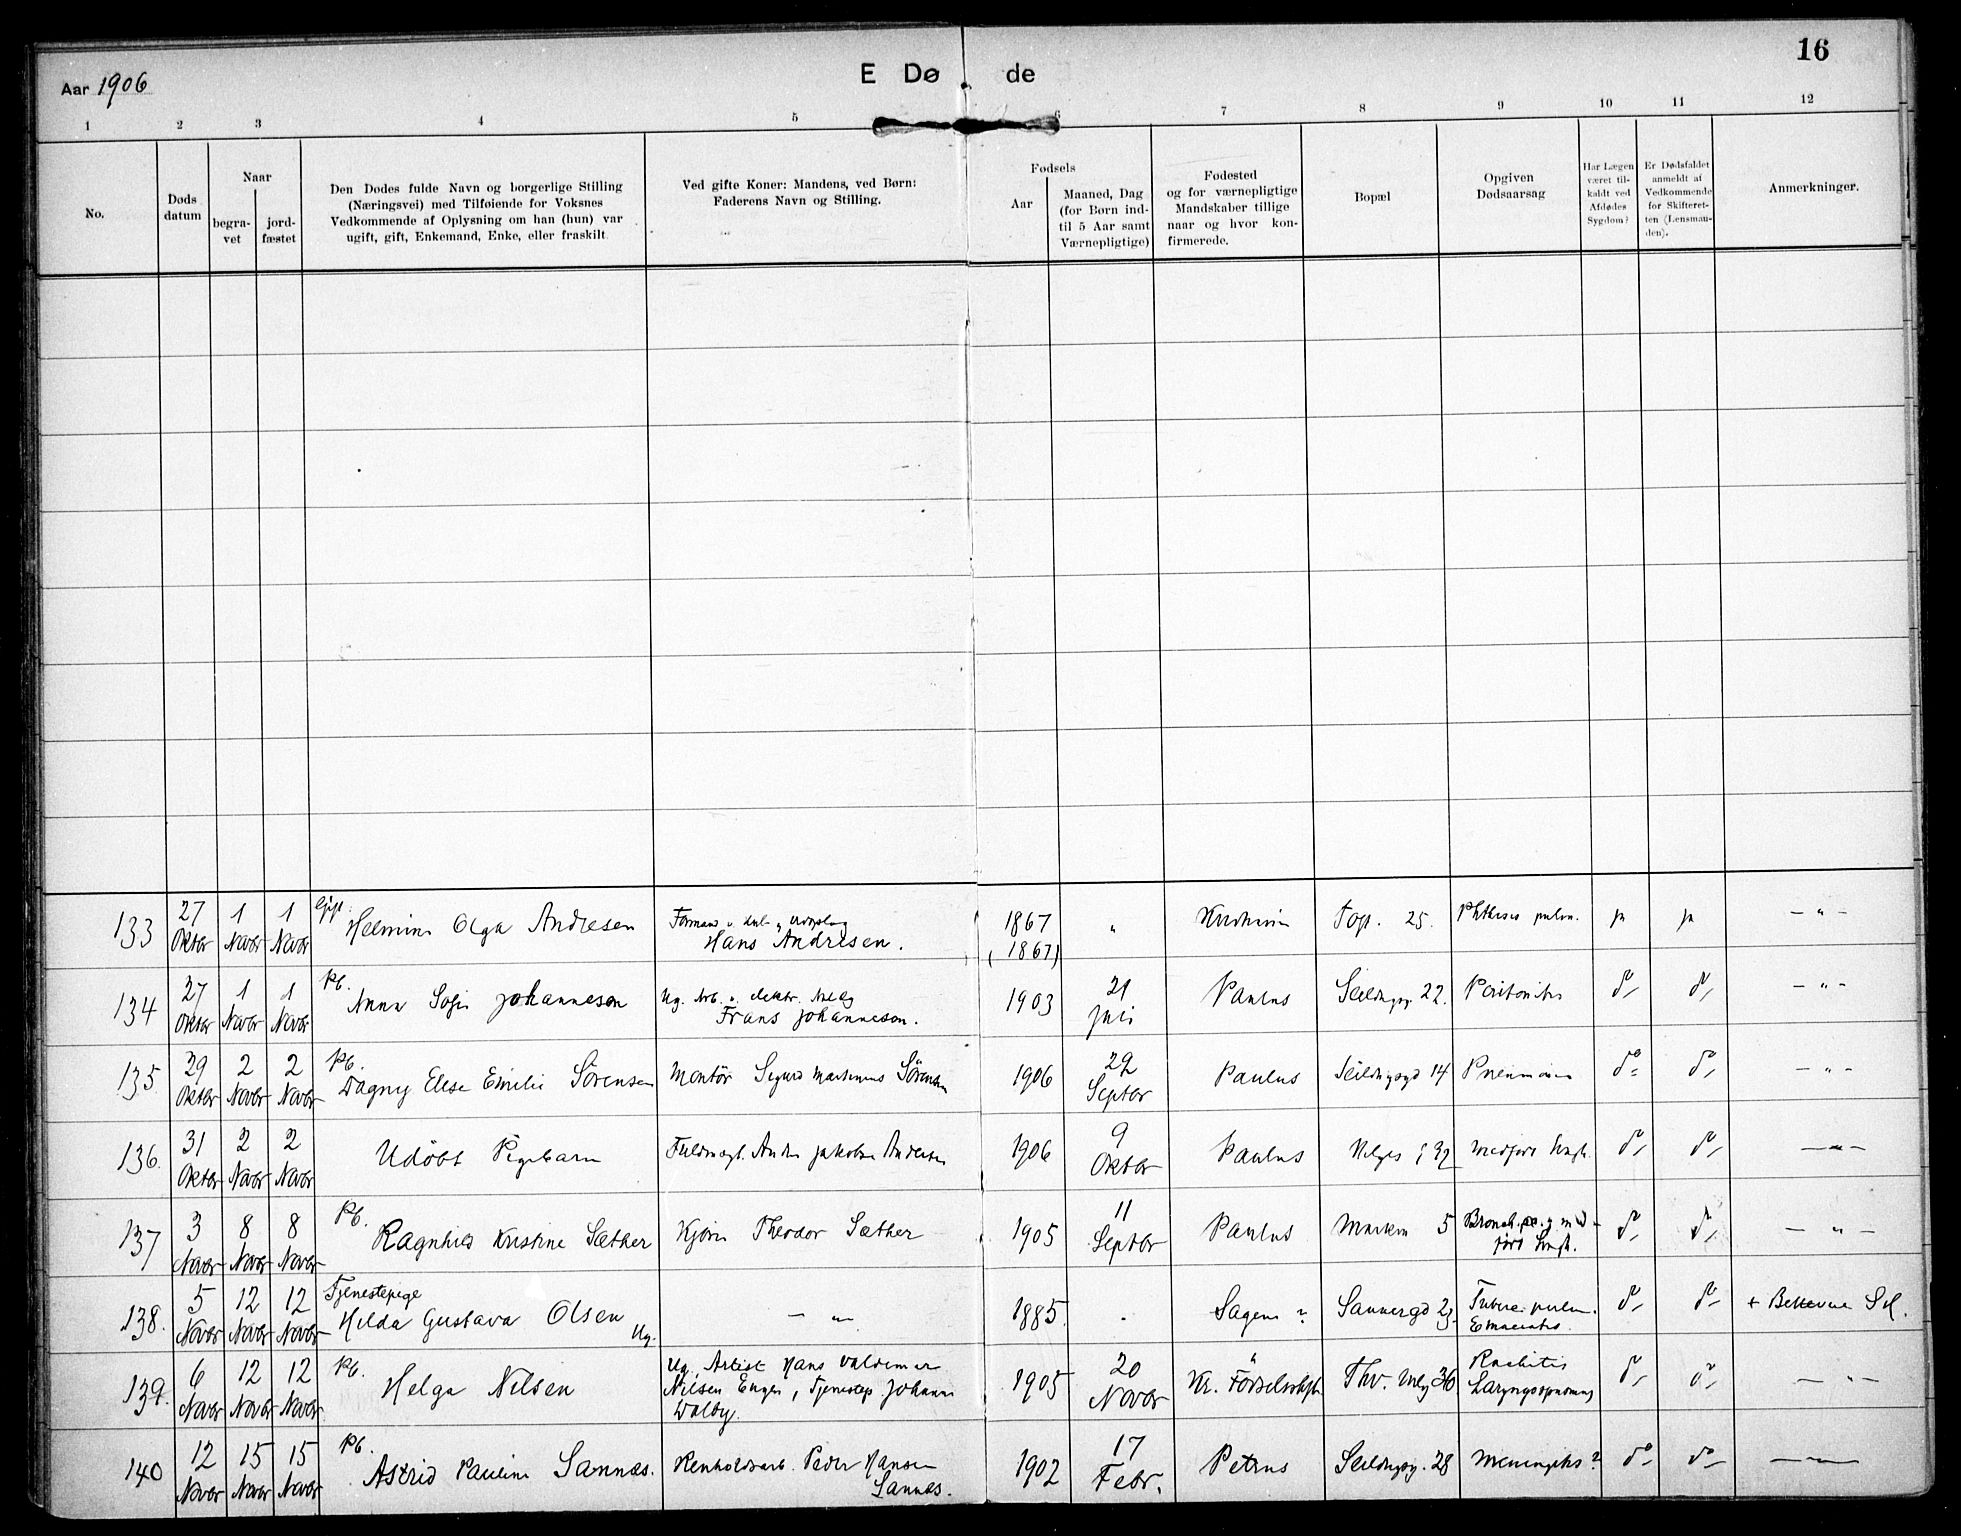 Aar 1906
E Dø de
16
1 2 3 4 5 6 7 8 9 10 11 12
No.
Døds datum
Naar
begra-vet
jord-fæstet
Den Dødes fulde Navn og borgerlige Stilling
(Næringsvei) med Tilføiende for Voksnes
Vedkommende af Oplysning om han (hun) var
ugift, gift, Enkemand, Enke, eller fraskilt
Ved gifte Koner: Mandens, ved Børn:
Faderens Navn og Stilling.
Fødsels
Aar
Maaned, Dag
(for Børn ind-
til 5 Aar samt
Værnepligtige)
Fødested
og for værnepligtige
Mandskaber tillige
naar og hvor kon-
firmerede.
Bopæl
Opgiven
Dødsaarsag
Har Lægen
været til-
kaldt ved
Afdødes
Sygdom?
Er Dødsfaldet
anmeldt af
Vedkommende
for Skifteret-
ten (Lensman-
den).
Anmerkninger.
133 27 Oktbr 1 Novbr 1 Novbr Gift Olga Andresen
Hans Andresen. 1867 " 25. Phthisis pulm. ja ja — " —
(1867)
134 27 Oktbr 1 Novbr 1 Novbr Pb. Anna Sofie Johannesen
Ug. Arb. v. elektr.
Frans Johannesen. 1903 21 Juli Paulus Seildugsg. 22. Peritonitis do do — " —
135 29 Oktbr 2 Novbr 2 Novbr Pb.
Dagny Elise Emilie Sörensen Montör Sigurd Martinius Sörensen 1906 29 Septbr Paulus Seildugsgd 14 Pneumoni do do — " —
136. 31 Oktbr 2 Novbr 2 Novbr Udöbt Pigebarn Fuldmægt. Jakobsen Andersen 1906 9 Oktbr Paulus Helges g 32 Medfört Svagh. do do — " —
137 3 Novbr 8 Novbr 8 Novbr Pb.
Ragnhild Kristine Sæther Theodor Sæther 1905 11 Septbr Paulus 5 do do — " —
138. 5 Novbr 12 Novbr 12 Novbr Tjenestepige
Hilda Gustava Olsen Ug. — " — 1885. Sagene ? Sannergd 23. Tuberc. pulm. do do
139. 6 Novbr 12 Novbr 12 Novbr Pb.
Helga Nilsen Ug. Artist Hans Valdemar
Nilsen Enger, Tjenestep. Johanne
Dalby. 1905 20 Novbr Kr. Födselsstift. Thv. Mey 36 Rachitis
Laryngospasmus do do — " —
140 12 Novbr 15 Novbr 15 Novbr Pb.
Astrid Pauline Sannæs. Renholdsarb. Peder Hansen
Sannæs. 1902 17 Febr. Petrus Seildugsg. 28 Meningitis? do do — " —